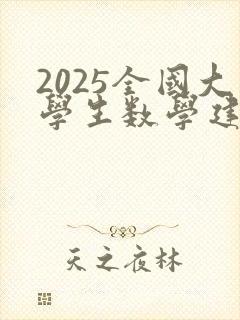 2025全國大
學生数學建
天之夜林